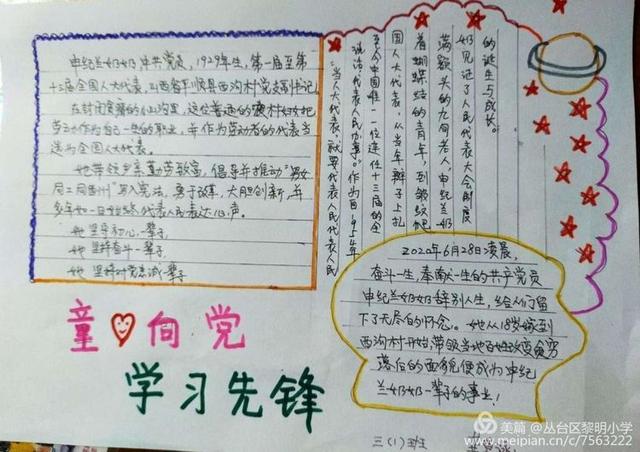 申纪兰奶奶中共党员,1929年生,第一届至第
十三届全国人大代表,山西省平顺县西沟村党支部书记
在封闭贫瘠的小山沟里,这位普通的农村妇女把
劳动作为自己一生的职业,并作为劳动者的代表当
选为全国人大代表。
她带领乡亲勤劳致富,倡导并推动"男女
同工同酬"写入宪法,勇于改革,大胆创新,并
多年如一日始终代表人民表达心声。
她坚守初心一辈子,
她坚持奋斗一辈子,
她坚持对党忠诚一辈子
的诞生与成长。
奶见证了人民代表大会制度
满额头的九旬老人,申纪兰奶
着蝴蝶结的青年,到皱纹爬
国人大代表,从当年辫子上扎
至今中国唯一一位连任十三届的全
说话,代表人民办事。"作为自1954年
"当人大代表,就要代表人民代表人民
2020年6月28日凌晨,
奋斗一生,奉献一生的共产党员
申纪兰奶奶辞别人生,给人们留
下了无尽的怀念。她从18岁嫁到
西沟村开始,带领当地百姓改变贫穷
落后的面貌便成为申纪
兰奶奶一辈子的事业!
童心向党
学习先锋
三(1)班
美篇 @丛台区黎明小学
www.meipian.cn/c/7563222